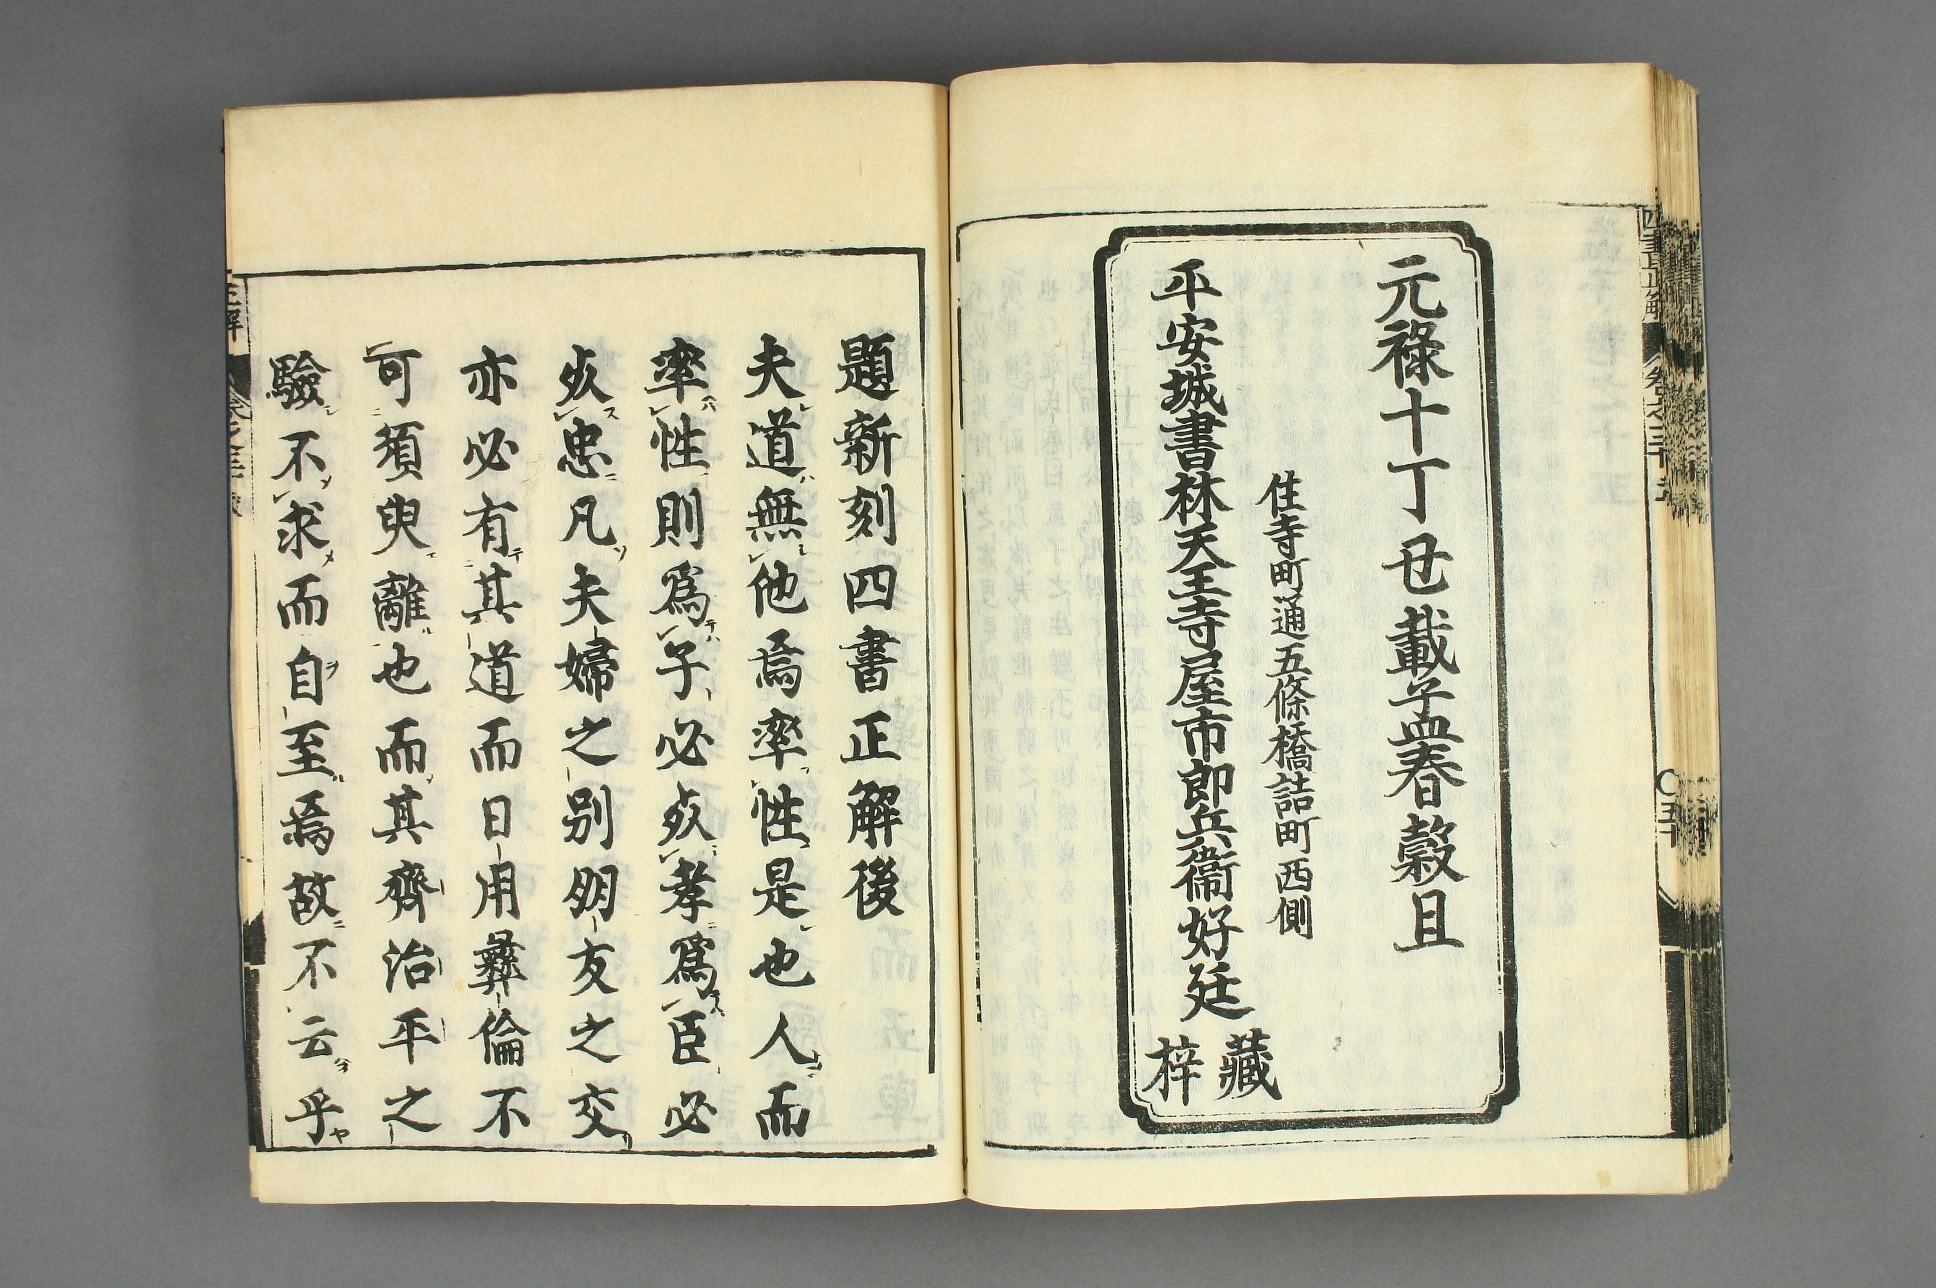 元祿十丁丑載孟春穀旦
住寺町通五條橋詰町西側
平安城書林天王寺屋市郎兵衞好廷
藏梓
題新刻四書正解後
夫道無他焉率性是也人而
率性則爲子必㱏孝爲臣必
㱏忠凡夫婦之別朋友之交
亦必有其道而日用彝倫不
可須臾離也而其齊治平之
驗不求而自至焉故不云乎